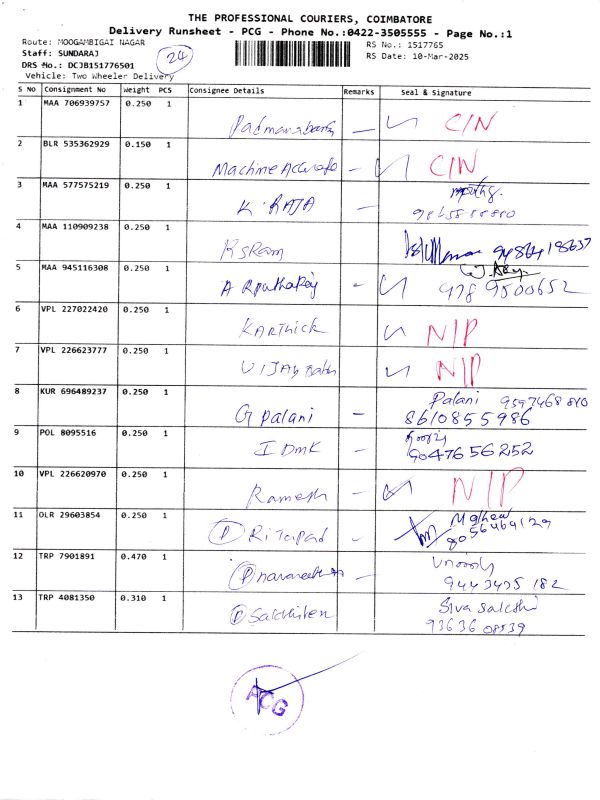 THE PROFESSIONAL COURIERS, COIMBATORE
Delivery Runsheet - PCG - Phone No.:0422-3505555 - Page No.:1
Route: MOOGAMBIGAI NAGAR
RS No.: 1517765
Staff: SUNDARAJ
24
RS Date: 10-Mar-2025
DRS No.: DCJB151776501
Vehicle: Two Wheeler Delivery
S No Consignment No Weight PCS Consignee Details Remarks Seal & Signature
1 MAA 706939757 0.250 1
C/N
2 BLR 535362929 0.150 1
Machine C/N
3 MAA 577575219 0.250 1
K. RAJA
4 MAA 110909238 0.250 1
9486418637
5 MAA 945116308 0.250 1
9789500652
6 VPL 227022420 0.250 1
KARTHICK N/P
7 VPL 226623777 0.250 1
N/P
8 KUR 696489237 0.250 1
Palani
G palani — 8610855986
9 POL 8095516 0.250 1
I DMK — 9047656252
10 VPL 226620970 0.250 1
Ramesh — N/P
11 OLR 29603854 0.250 1
12 TRP 7901891 0.470 1
9443475182
13 TRP 4081350 0.310 1
9363608539
PCG